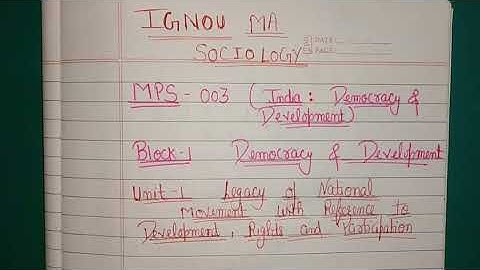 IGNOU MA
SOCIOLOGY
DATE:
PAGE:
MPS - 003 (India: Democracy &
Development)
Block-1 Democracy & Development
Unit-1 Legacy of National
Movement with Reference to
Development, Rights and Participation